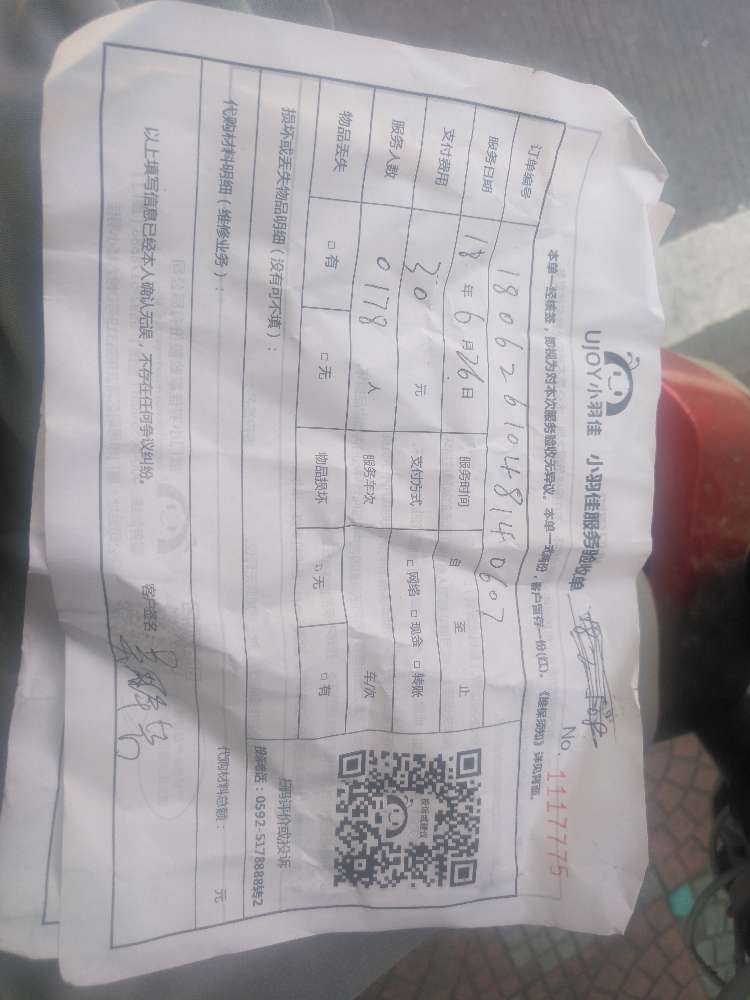 UJOY小羽佳 小羽佳服务验收单
No. 1117775
本单一经核签，即视为对本次服务验收无异议。本单一式两份，客户留存一份(红)。《维保须知》详见背面。
订单编号 180626104814 0607
服务日期 18年6月26日 服务时间 自 至 止
支付费用 30元 支付方式 □网络 □现金 □转账
服务人数 0178人 服务车次 车/次
物品丢失 □有 □无 物品损坏 □无 □有
损坏或丢失物品明细（没有可不填）：
投诉或建议
扫码评价或投诉
投诉电话：0592-5178888转2
代购材料明细（维修业务）：
代购材料总额： 元
以上填写信息已经本人确认无误，不存在任何争议纠纷。
客户签名：